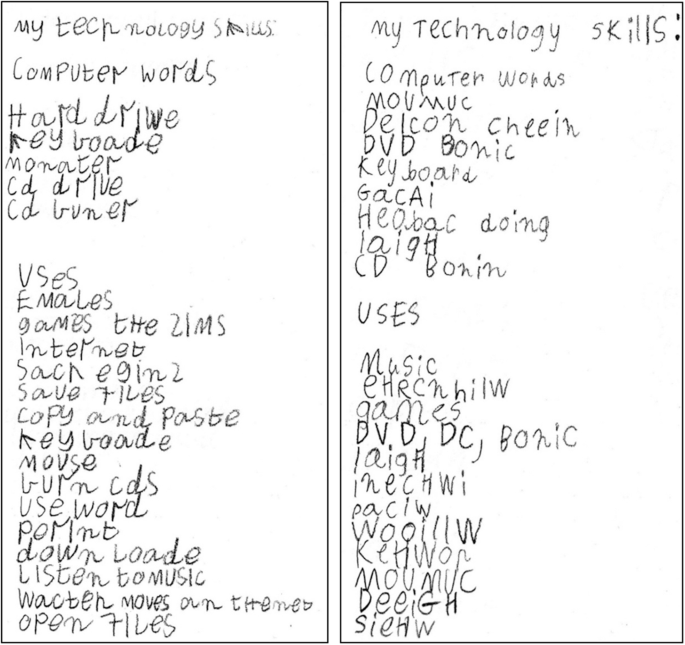 My tecpnology Skills
Computer words
Hard driwe
Keyboade
monater
Cd drive
Cd buner
USes
EMales
games the ZIMS
Internet
Sach eginz
Save FILes
Copy and Paste
Keyboade
Mouse
burn cds
Use word
perint
down Loade
Listen toMUSIC
wacter moves an thenet
open FILes
My Technology Skills:
Computer words
MOUMUC
Delcon cheein
DVD Bonic
Keyboard
GacAi
Heobac doing
laigH
CD Bonin
USES
Music
eHRcnhilW
games
DVD, DC, BoniC
laigH
inecHWi
paciW
WooillW
KeHWon
MOUMUC
DeeiGH
SieHW